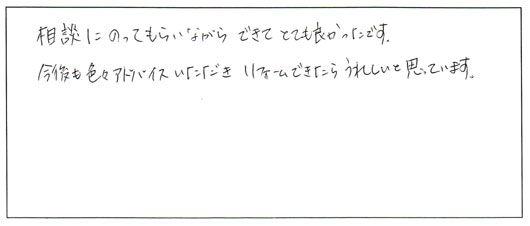 相談にのってもらいながらできてとても良かったです。
今後も色々アドバイスいただき リフォームできたらうれしいと思っています。